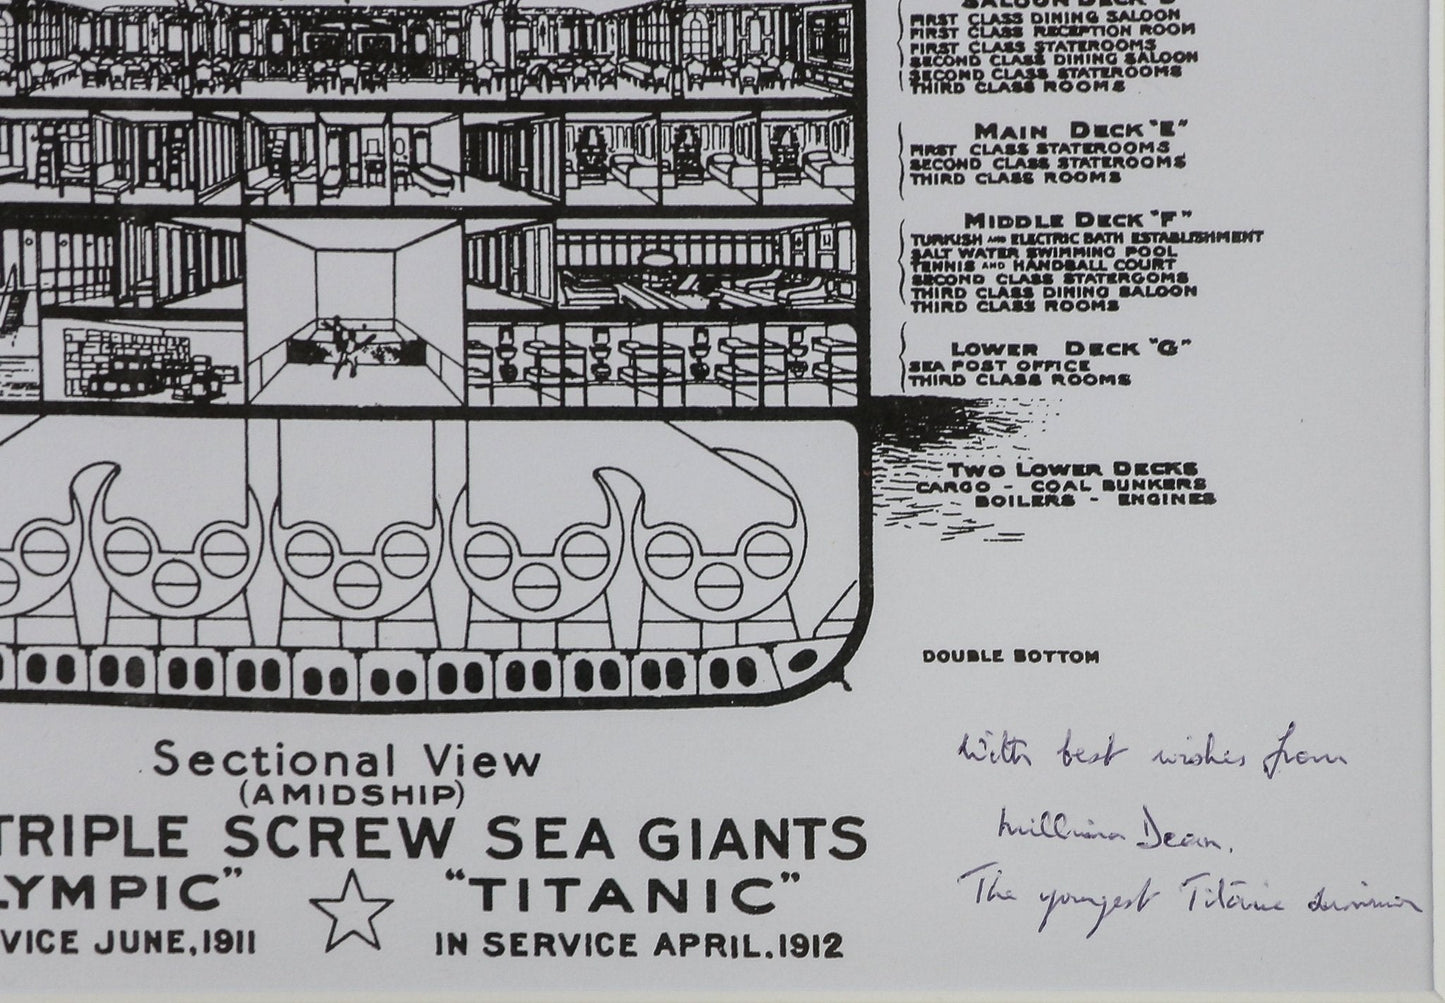 SALOON DECK "D"
FIRST CLASS DINING SALOON
FIRST CLASS RECEPTION ROOM
FIRST CLASS STATEROOMS
SECOND CLASS DINING SALOON
SECOND CLASS STATEROOMS
THIRD CLASS ROOMS
MAIN DECK "E"
FIRST CLASS STATEROOMS
SECOND CLASS STATEROOMS
THIRD CLASS ROOMS
MIDDLE DECK "F"
TURKISH AND ELECTRIC BATH ESTABLISHMENT
SALT WATER SWIMMING POOL
TENNIS AND HANDBALL COURT
SECOND CLASS STATEROOMS
THIRD CLASS DINING SALOON
THIRD CLASS ROOMS
LOWER DECK "G"
SEA POST OFFICE
THIRD CLASS ROOMS
TWO LOWER DECKS
CARGO - COAL BUNKERS
BOILERS - ENGINES
DOUBLE BOTTOM
Sectional View
(AMIDSHIP)
TRIPLE SCREW SEA GIANTS
LYMPIC" "TITANIC"
VICE JUNE, 1911 IN SERVICE APRIL, 1912
With best wishes from
Millvina Dean.
The youngest Titanic survivor